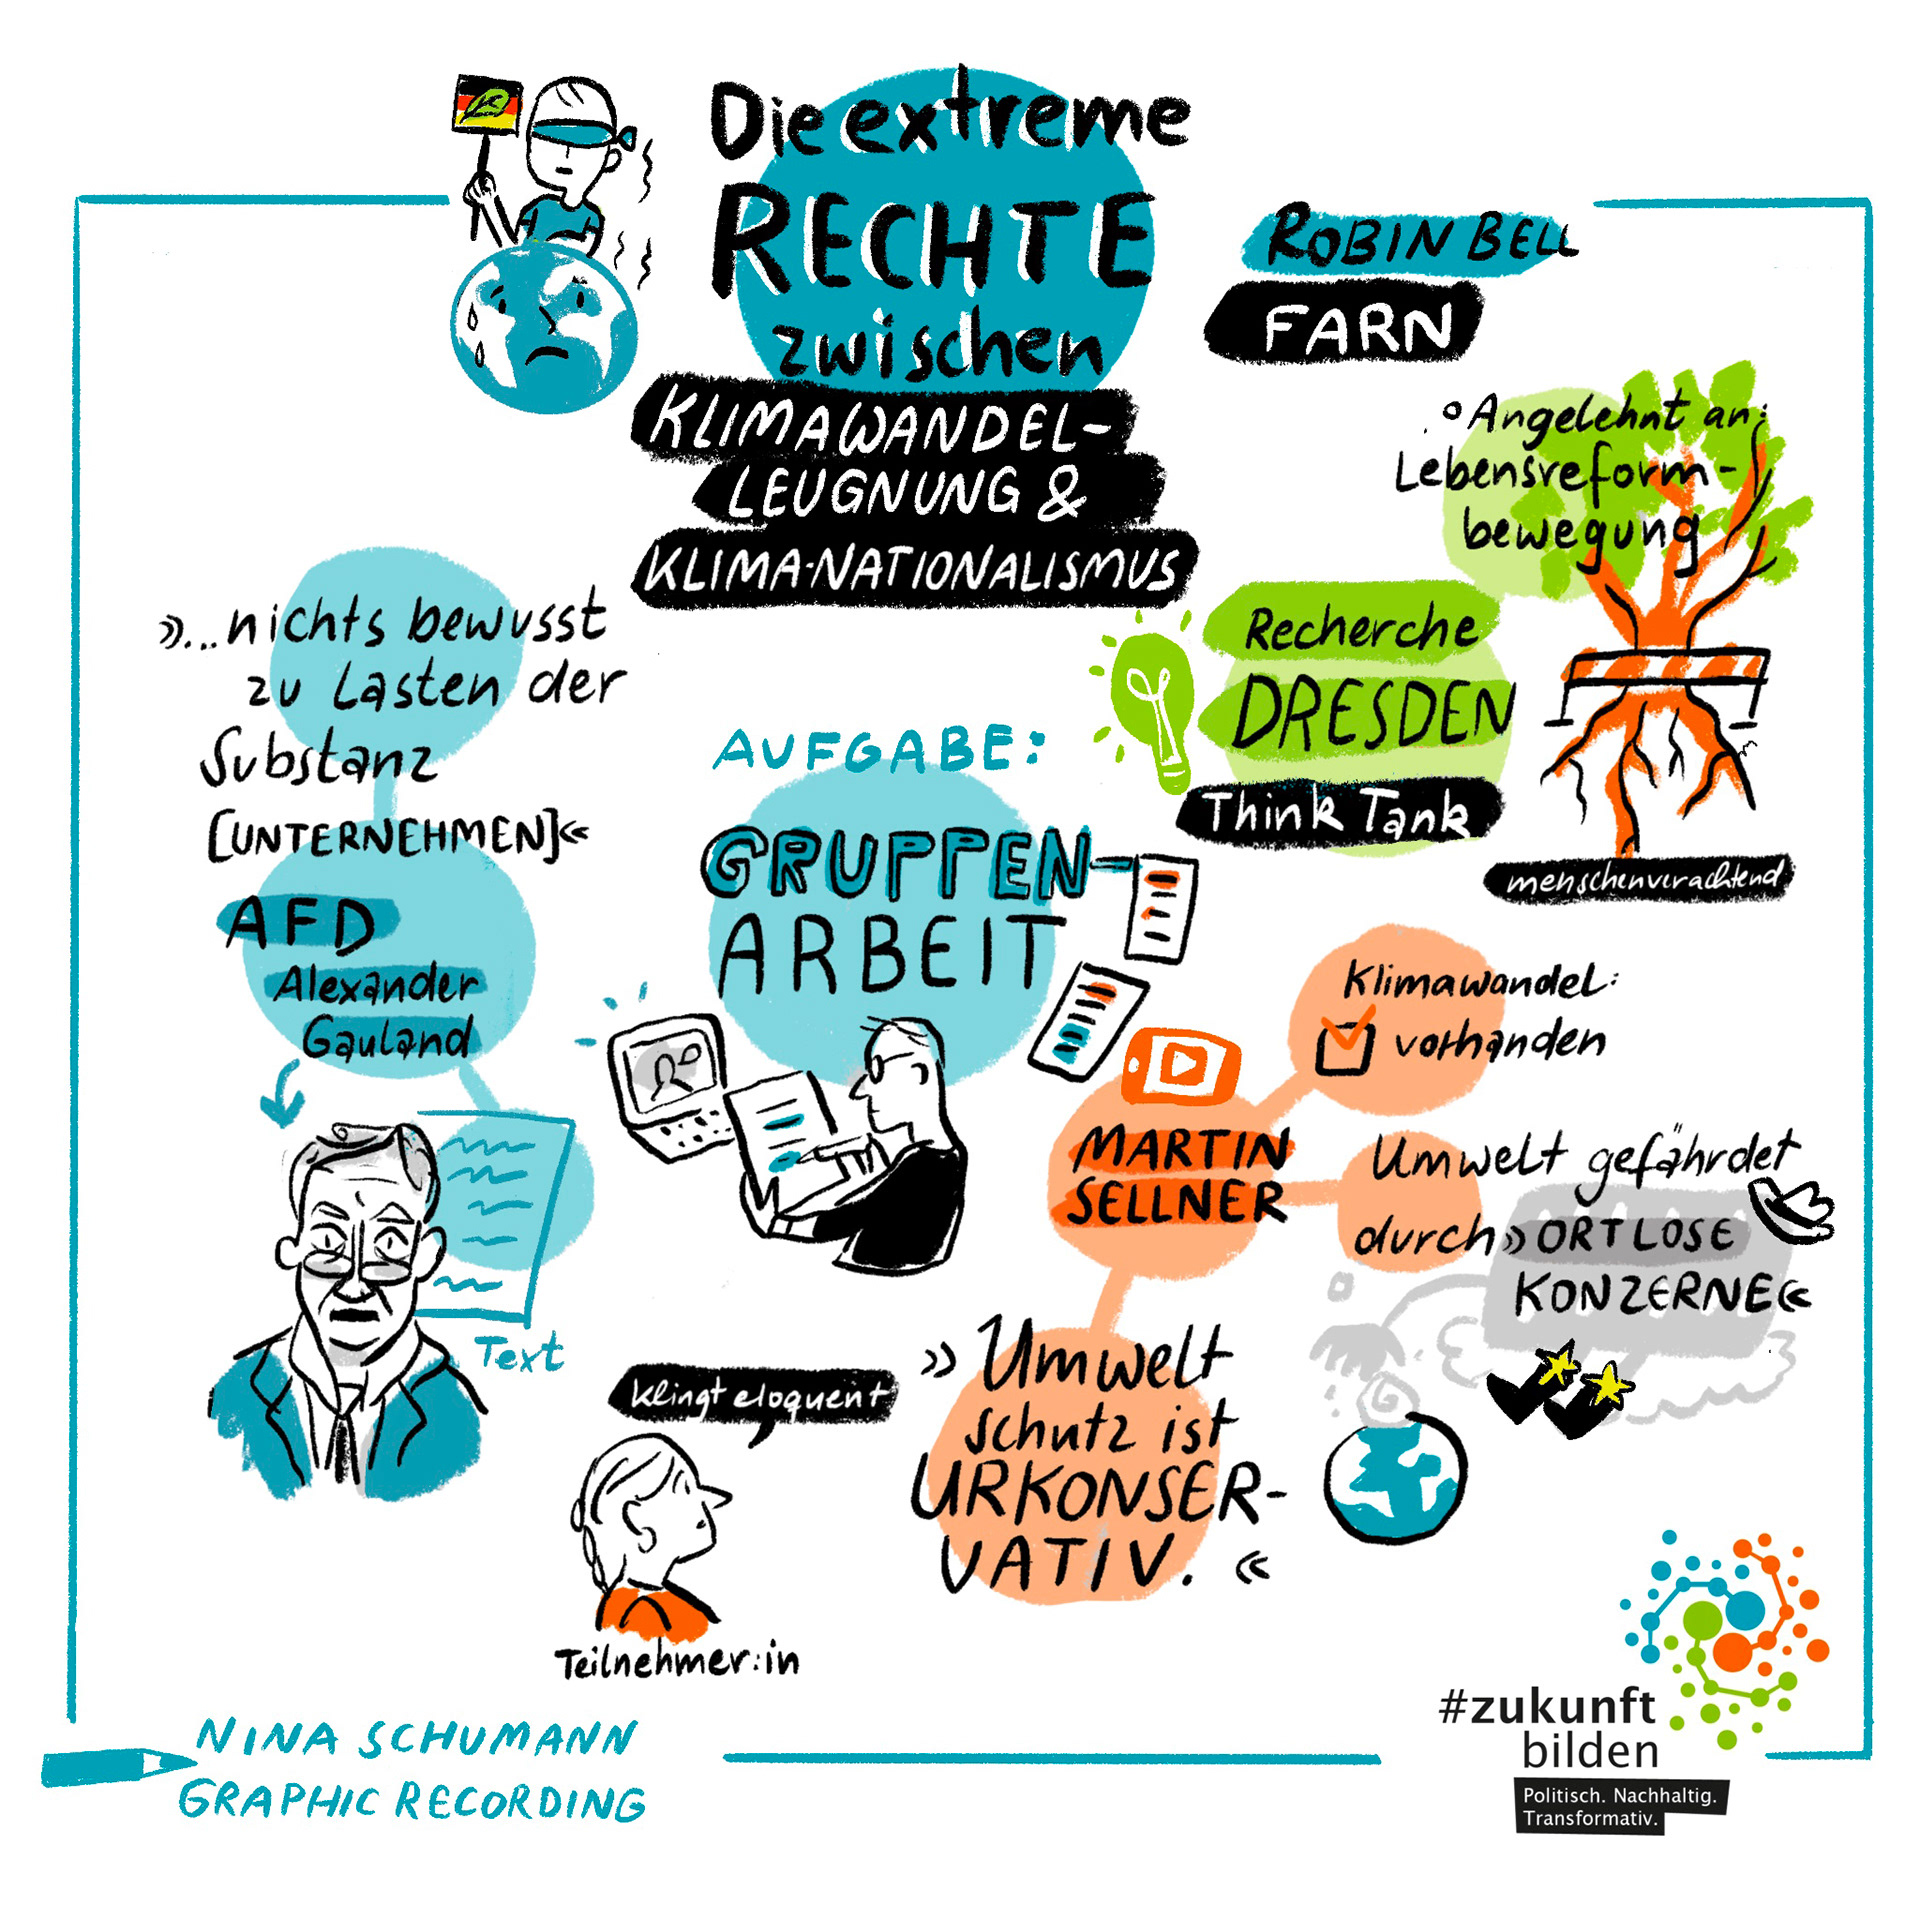 Die extreme
RECHTE
zwischen
KLIMAWANDEL-
LEUGNUNG &
KLIMA-NATIONALISMUS
ROBIN BELL
FARN
° Angelehnt an:
Lebensreform-
bewegung
Recherche
DRESDEN
Think Tank
menschenverachtend
»...nichts bewusst
zu Lasten der
Substanz
[UNTERNEHMEN]«
AFD
Alexander
Gauland
Text
AUFGABE:
GRUPPEN-
ARBEIT
klingt eloquent
Teilnehmer:in
MARTIN
SELLNER
Klimawandel:
vorhanden
Umwelt gefährdet
durch »ORTLOSE
KONZERNE«
»Umwelt
schutz ist
URKONSER-
VATIV. «
NINA SCHUMANN
GRAPHIC RECORDING
#zukunft
bilden
Politisch. Nachhaltig.
Transformativ.